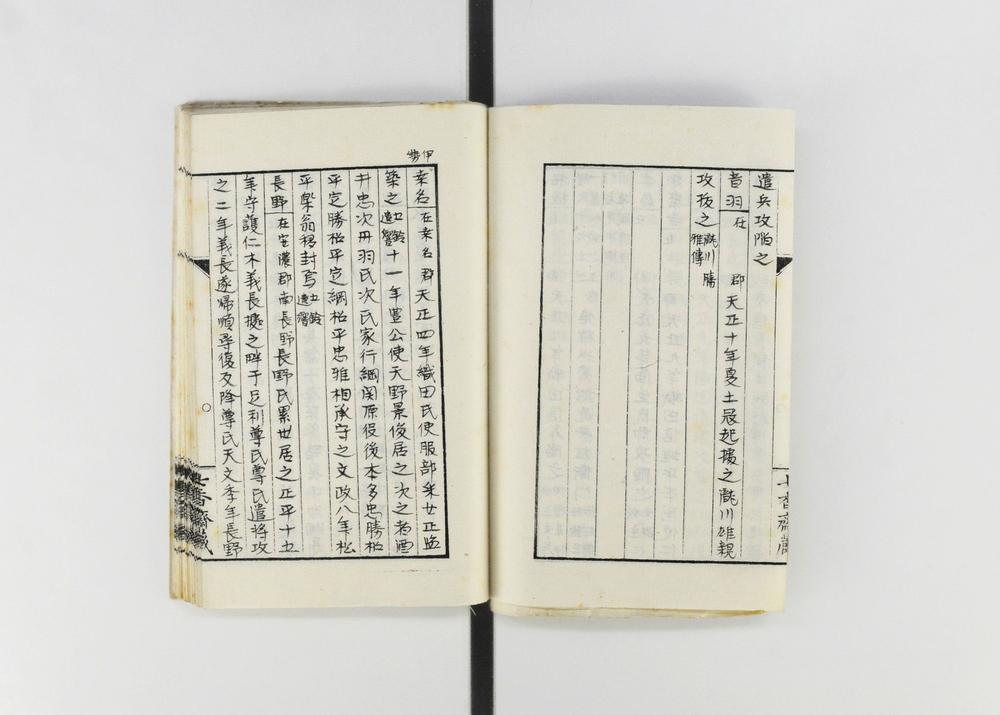 遣兵攻陥之
音羽 在 郡天正十年夏土寇起據之瀧川雄親
攻抜之 瀧川勝雅傳
七香齋蔵
伊勢
桒名 在桒名郡天正四年織田氏使服部采女正
築之 十一年豊公使天野景俊居之次之者酒
井忠次丹羽氏次氏家行綱関原役後本多忠勝松
平定勝松平定綱松平忠雅相承守之文政八年松
平樂翁移封焉
長野 在安濃郡南長野長野氏累世居之正平十五
年守護仁木義長據之畔于足利尊氏尊氏遣将攻
之二年義長遂帰順尋復及降尊氏天文季年長野
七香齋蔵